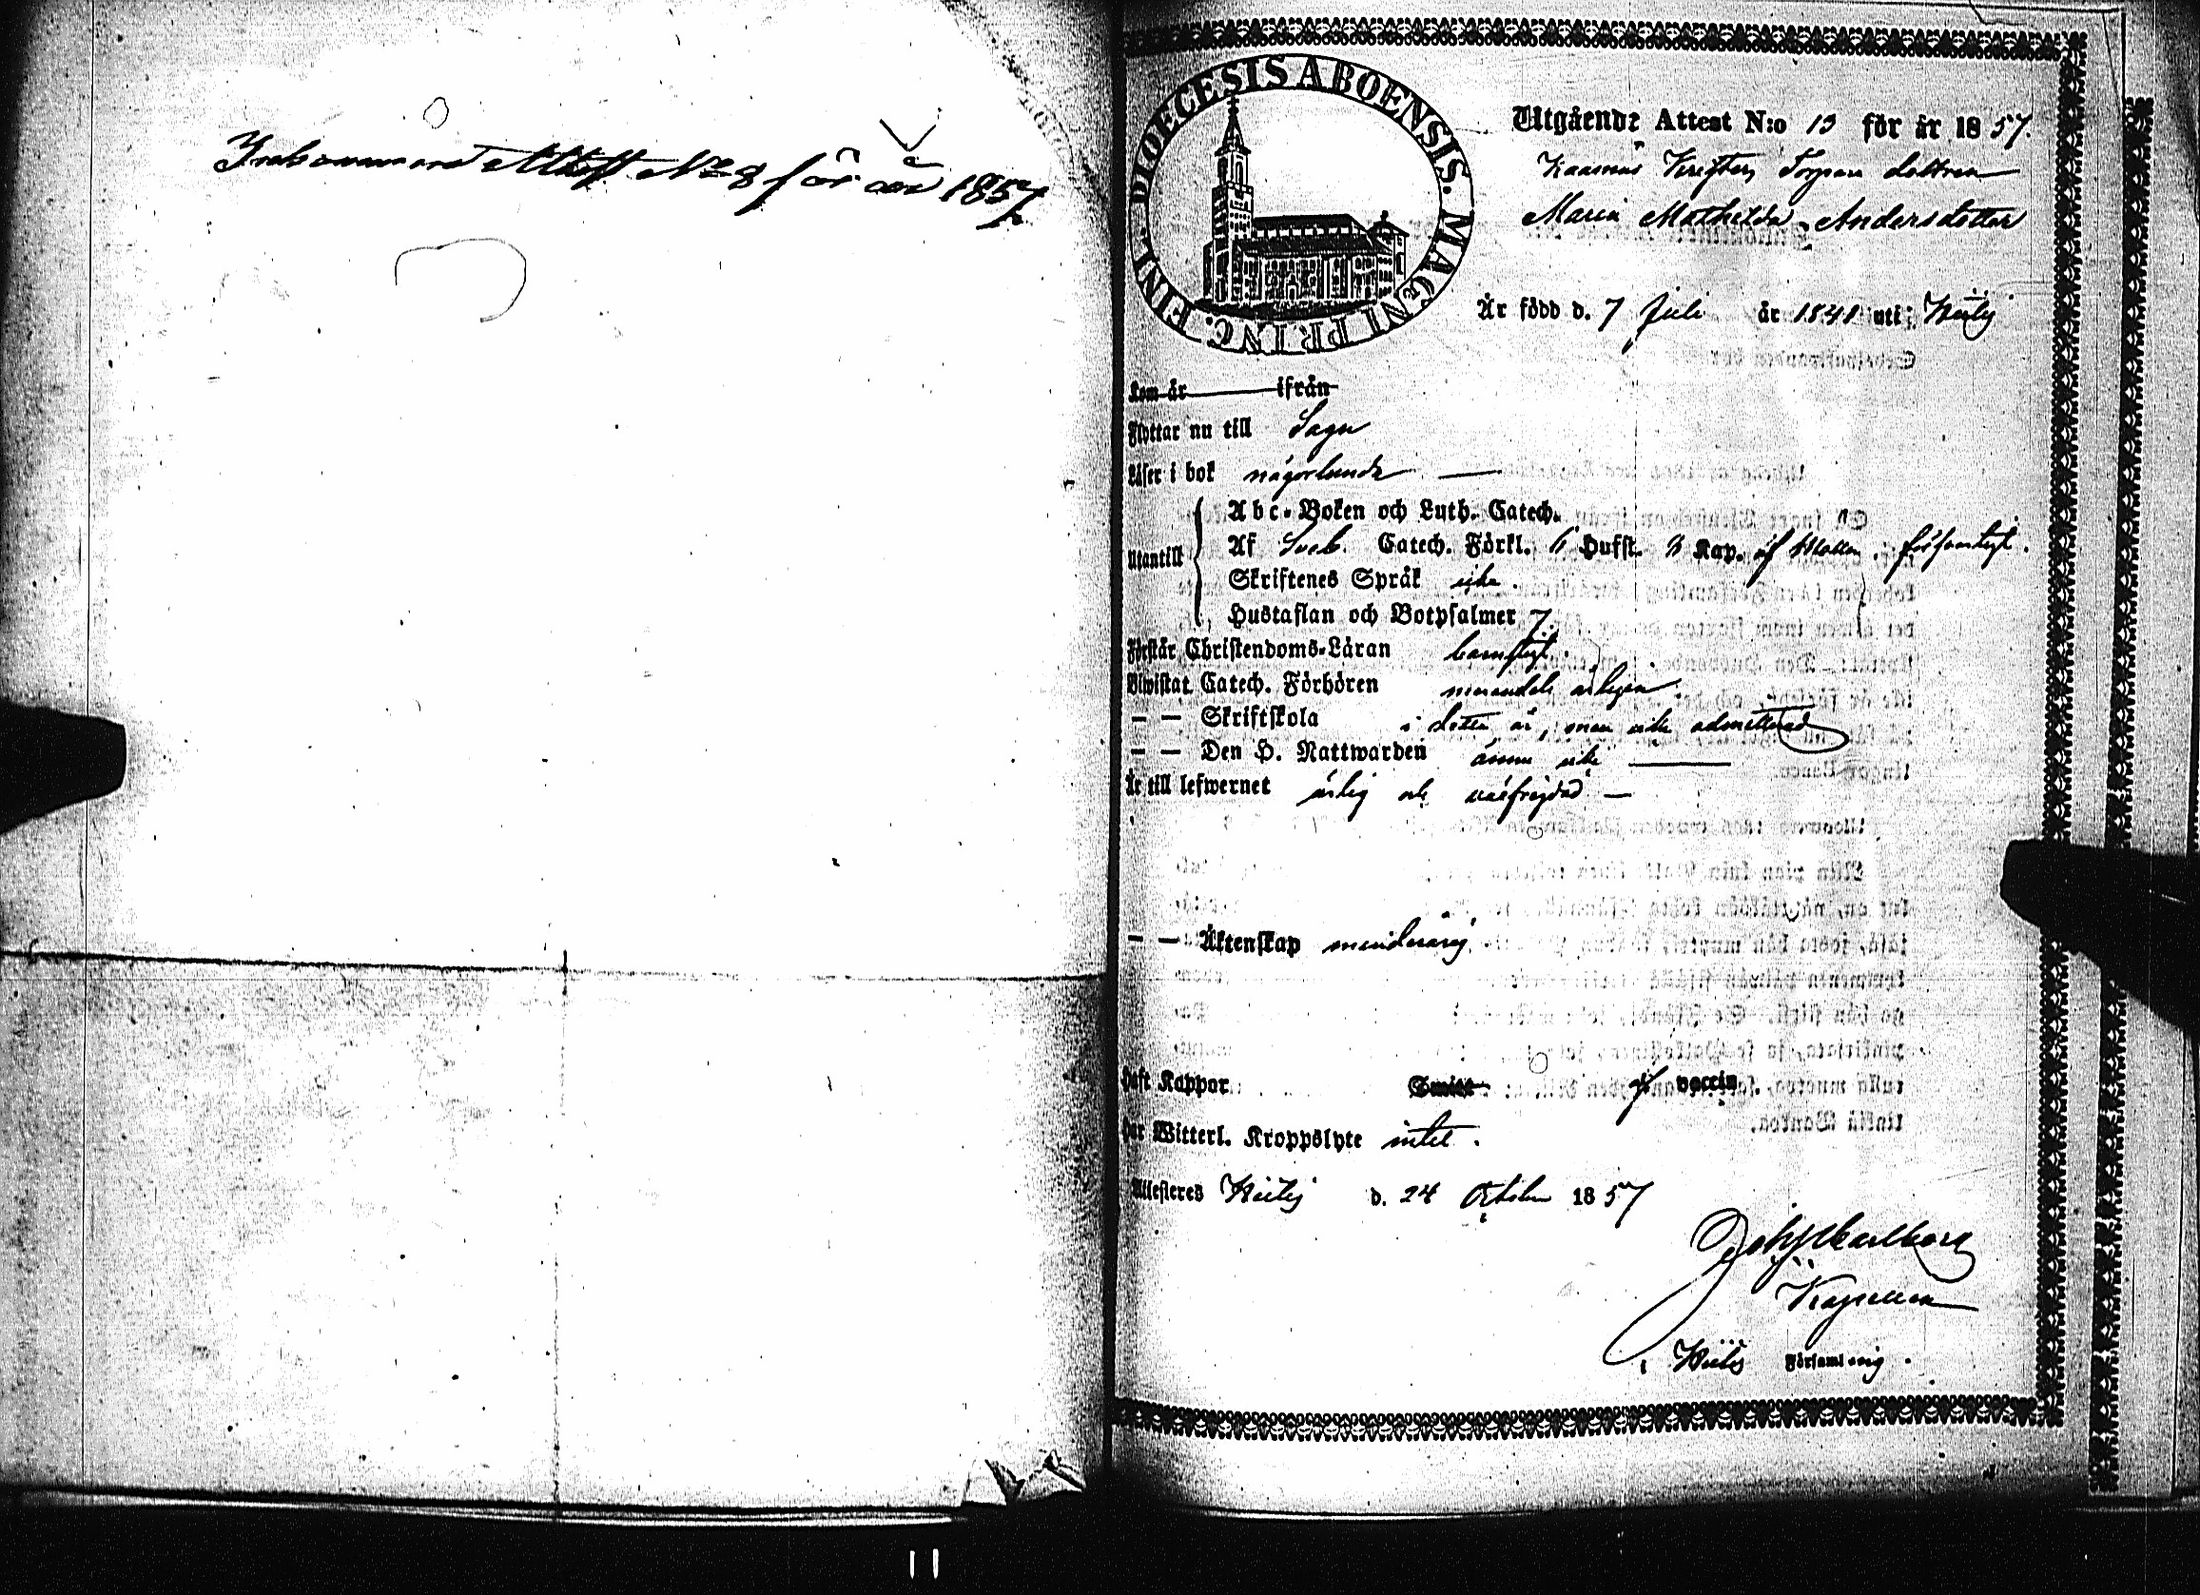 Inkommande Attest No 8 för år 1857
DIOECESIS ABOENSIS. MAGNI PRINC. FINL.
Utgående Attest N:o 13 för år 1857.
Torpare dottren
Maria Mathilda Andersdotter
Är född d. 7 Juli år 1841 uti
Kom år ifrån
Flyttar nu till Sagu
Läser i bok någorlunda
Utantill
Abc-Boken och Luth. Catech.
Af Sveb. Catech. Förkl. 6 Hufst. 3 Kap. af
Skriftenes Språk icke.
Hustaflan och Botpsalmer 7.
Förstår Christendoms-Läran barnsligt.
Biwistat Catech. Förhören merendels årligen.
— — Skriftskola i detta år, men icke admitterad
— — Den H. Nattwarden ännu icke
Är till lefwernet ärlig och välfrejdad —
— — Äktenskap minderårig
Haft Koppor Smitt vaccin.
Har Witterl. Kroppslyte intet.
Attesteres d. 24 October 1857
Kapellan
i Församling.